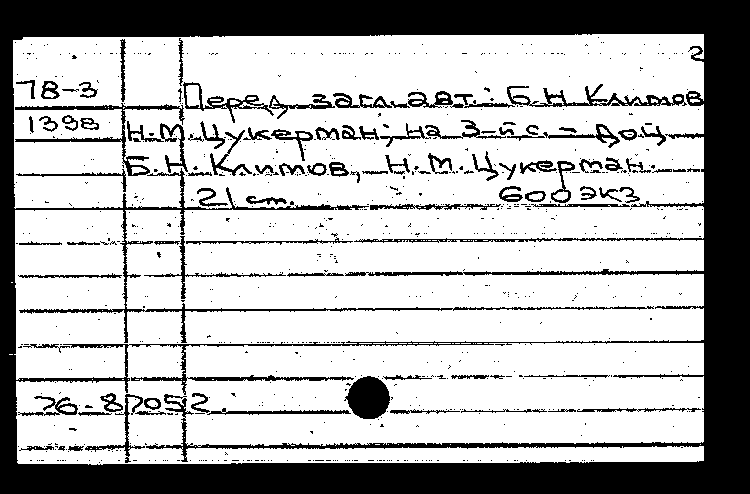 2
78-3 Перед загл. авт.: Б.Н Климов
1398 Н.М.Цукерман; на 3-й с. - доц.
Б.Н. Климов, Н.М.Цукерман.
21 см. 600 экз.
76-87052.